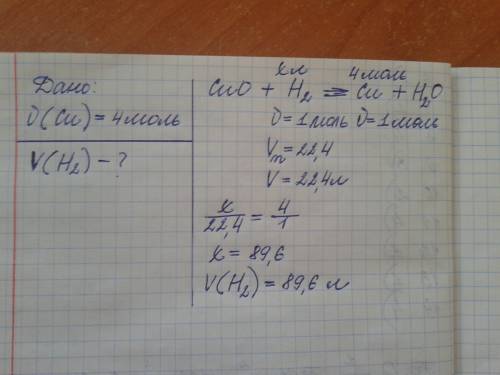 Дано:
υ(Cu) = 4 моль
V(H₂) - ?
x л 4 моль
CuO + H₂ = Cu + H₂O
υ=1 моль υ=1 моль
Vₙ = 22,4
V = 22,4 л
x/22,4 = 4/1
x = 89,6
V(H₂) = 89,6 л